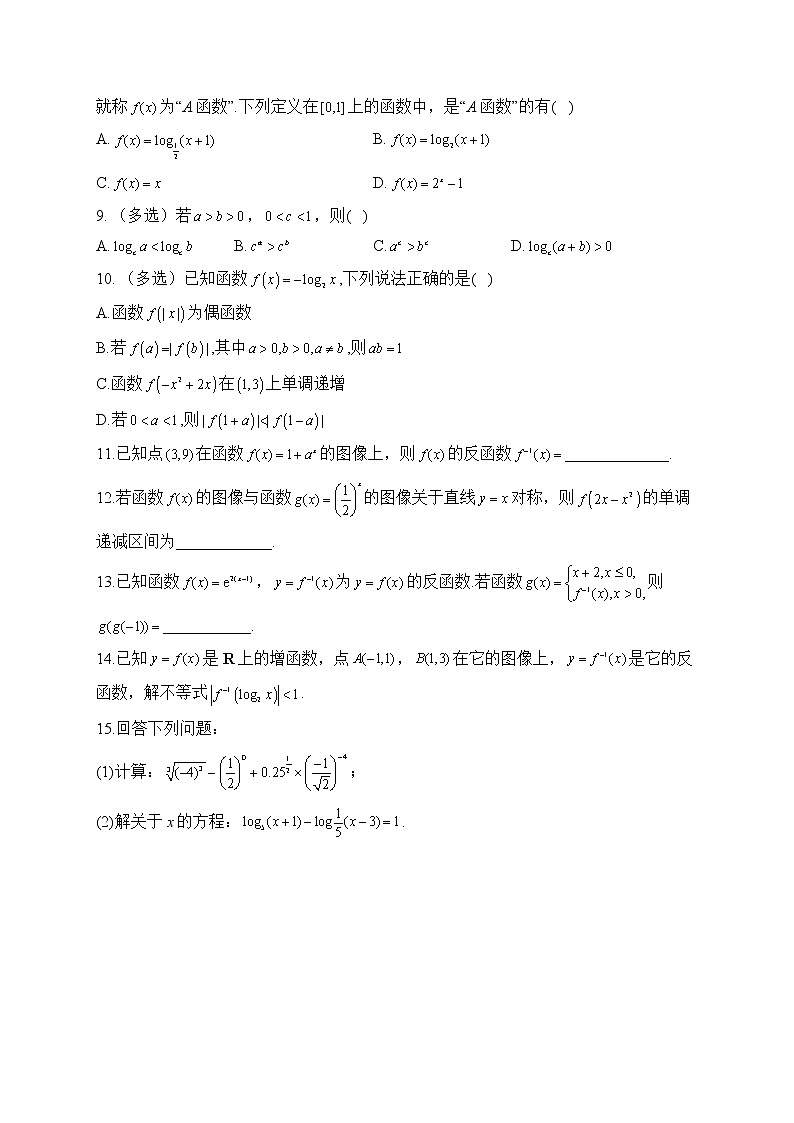 就称 f(x) 为“A 函数”.下列定义在[0,1]上的函数中，是“A 函数”的有(   )
A. f(x)=log_{1/2}(x+1)    B. f(x)=log₂(x+1)
C. f(x)=x    D. f(x)=2ˣ−1
9. （多选）若 a>b>0， 0<c<1，则(   )
A. log_c a<log_c b    B. cᵃ>cᵇ    C. aᶜ>bᶜ    D. log_c(a+b)>0
10. （多选）已知函数 f(x)=−log₂ x ,下列说法正确的是(   )
A.函数 f(|x|)为偶函数
B.若 f(a)=|f(b)|,其中 a>0,b>0,a≠b ,则 ab=1
C.函数 f(−x²+2x)在(1,3)上单调递增
D.若 0<a<1,则 |f(1+a)|<|f(1−a)|
11.已知点(3,9)在函数 f(x)=1+aˣ 的图像上，则 f(x) 的反函数 f⁻¹(x)=_____________.
12.若函数 f(x) 的图像与函数 g(x)=(1/2)ˣ 的图像关于直线 y=x 对称，则 f(2x−x²)的单调
递减区间为____________.
13.已知函数 f(x)=e^{2(x−1)}， y=f⁻¹(x)为 y=f(x) 的反函数.若函数 g(x)={x+2,x≤0, f⁻¹(x),x>0, 则
g(g(−1))=___________.
14.已知 y=f(x) 是 R 上的增函数，点 A(−1,1)， B(1,3) 在它的图像上， y=f⁻¹(x) 是它的反
函数，解不等式|f⁻¹(log₂ x)|<1.
15.回答下列问题：
(1)计算：∛(−4)³−(1/2)⁰+0.25^{1/2}×(−1/√2)⁻⁴；
(2)解关于 x 的方程：log₅(x+1)−log 1/5 (x−3)=1.